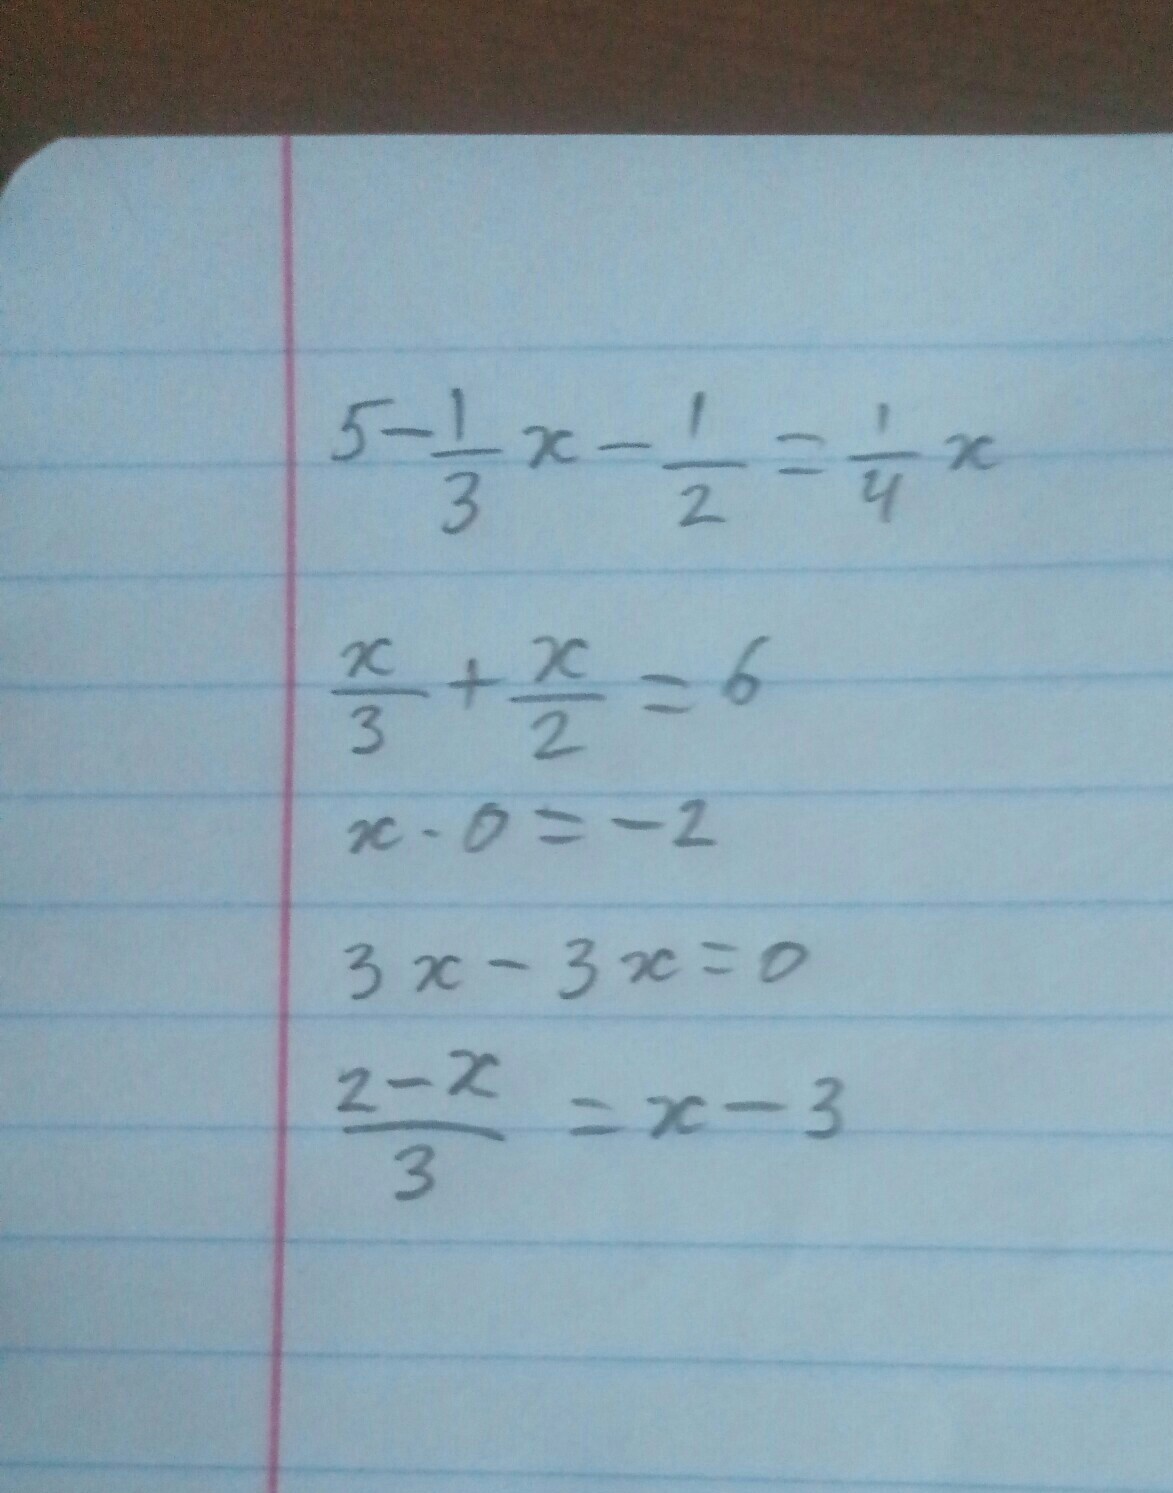 5 - 1/3 x - 1/2 = 1/4 x
x/3 + x/2 = 6
x · 0 = -2
3x - 3x = 0
2-x/3 = x - 3